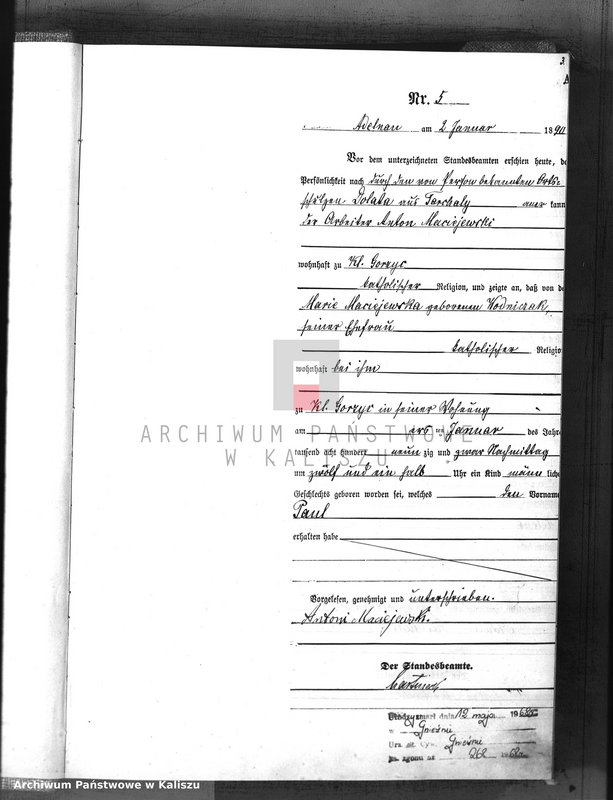 3
A
Nr. 5
Adelnau am 2 Januar 1890
Vor dem unterzeichneten Standesbeamten erschien heute, de
Persönlichkeit nach durch den von Person bekannten Orts-
schulzen Dolata aus Tarchaly aner kann
der Arbeiter Anton Maciejewski
wohnhaft zu Kl. Gorzyc
katholischer Religion, und zeigte an, daß von de
Marie Maciejewska geborenen Wodniczak,
seiner Ehefrau
katholischer Religio
wohnhaft bei ihm
zu Kl. Gorzyc in seiner Wohnung
am ersten Januar des Jahre
tausend acht hundert neun zig und zwar Nachmittag
um zwölf und ein halb Uhr ein Kind männ liche
Geschlechts geboren worden sei, welches den Vorname
Paul
erhalten habe
Vorgelesen, genehmigt und unterschrieben.
Antoni Maciejewski.
Der Standesbeamte.
zmarł dnia 12 maja 19
w Gnieźnie
Urz. st. Cyw. Gnieźnie
zgonu nr 262
ARCHIWUM PAŃSTWOWE
W KALISZU
Archiwum Państwowe w Kaliszu